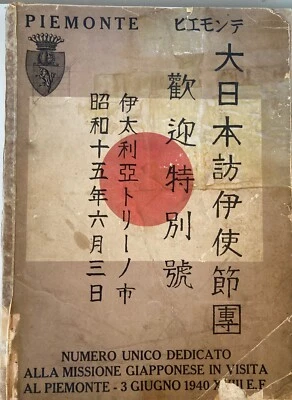 PIEMONTE ピエモンテ
大日本訪伊使節團
歡迎特別號
伊太利亞トリーノ市
昭和十五年六月三日
NUMERO UNICO DEDICATO
ALLA MISSIONE GIAPPONESE IN VISITA
AL PIEMONTE - 3 GIUGNO 1940 E.F.